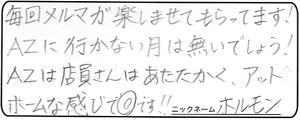 毎回メルマガ楽しませてもらってます!
AZに行かない月は無いでしょう!
AZは店員さんはあたたかく、アット
ホームな感じで◎です!! ニックネーム ホルモン